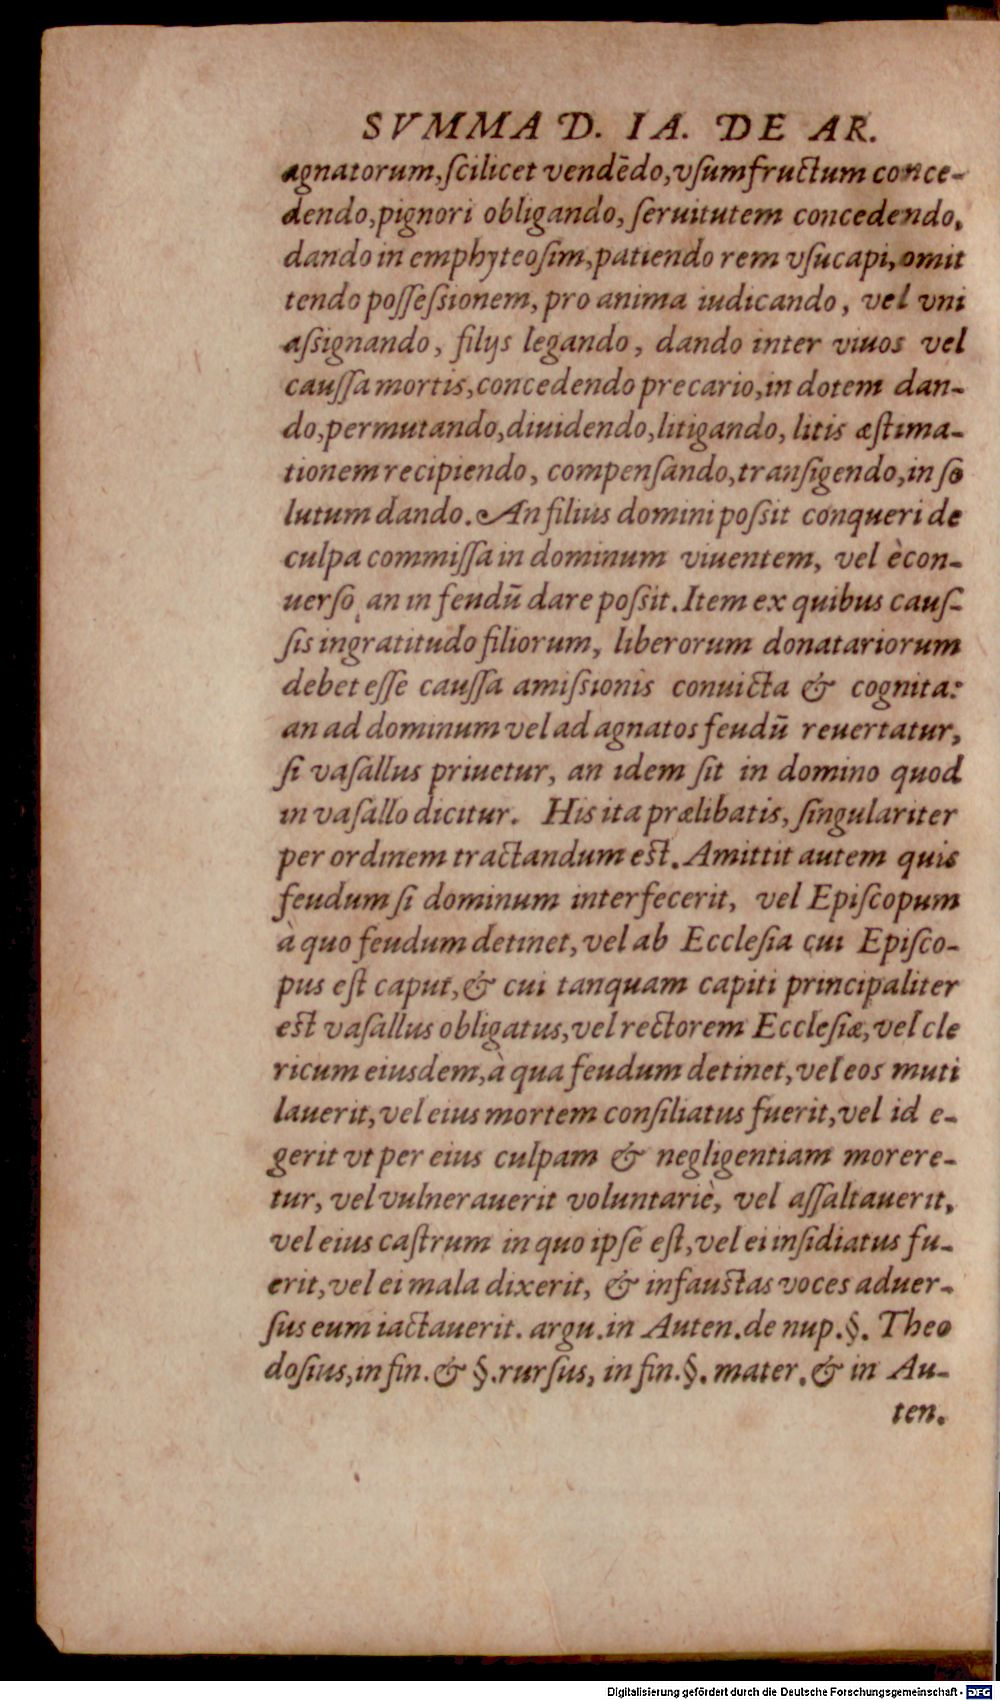 SVMMA D. IA. DE AR.
agnatorum, ſcilicet vendēdo, vſumfructum conce-
dendo, pignori obligando, ſeruitutem concedendo,
dando in emphyteoſim, patiendo rem vſucapi, omit
tendo poſſeſsionem, pro anima iudicando, vel vni
aſsignando, filijs legando, dando inter viuos vel
cauſſa mortis, concedendo precario, in dotem dan-
do, permutando, diuidendo, litigando, litis æſtima-
tionem recipiendo, compenſando, tranſigendo, in ſo
lutum dando. An filius domini poſsit conqueri de
culpa commiſſa in dominum viuentem, vel ècon-
uerſo, an in feudū dare poſsit. Item ex quibus cauſ-
ſis ingratitudo filiorum, liberorum donatariorum
debet eſſe cauſſa amiſsionis conuicta & cognita:
an ad dominum vel ad agnatos feudū reuertatur,
ſi vaſallus priuetur, an idem ſit in domino quod
in vaſallo dicitur. His ita prælibatis, ſingulariter
per ordinem tractandum est. Amittit autem quis
feudum ſi dominum interfecerit, vel Epiſcopum
à quo feudum detinet, vel ab Eccleſia cui Epiſco-
pus eſt caput, & cui tanquam capiti principaliter
est vaſallus obligatus, vel rectorem Eccleſiæ, vel cle
ricum eiusdem, à qua feudum detinet, vel eos muti
lauerit, vel eius mortem conſiliatus fuerit, vel id e-
gerit vt per eius culpam & negligentiam morere-
tur, vel vulnerauerit voluntariè, vel aſſaltauerit,
vel eius caſtrum in quo ipſe eſt, vel ei inſidiatus fu-
erit, vel ei mala dixerit, & infaustas voces aduer-
ſus eum iactauerit. argu. in Auten. de nup. §. Theo
doſius, in fin. & §. rurſus, in fin. §. mater. & in Au-
ten.
Digitalisierung gefördert durch die Deutsche Forschungsgemeinschaft - DFG